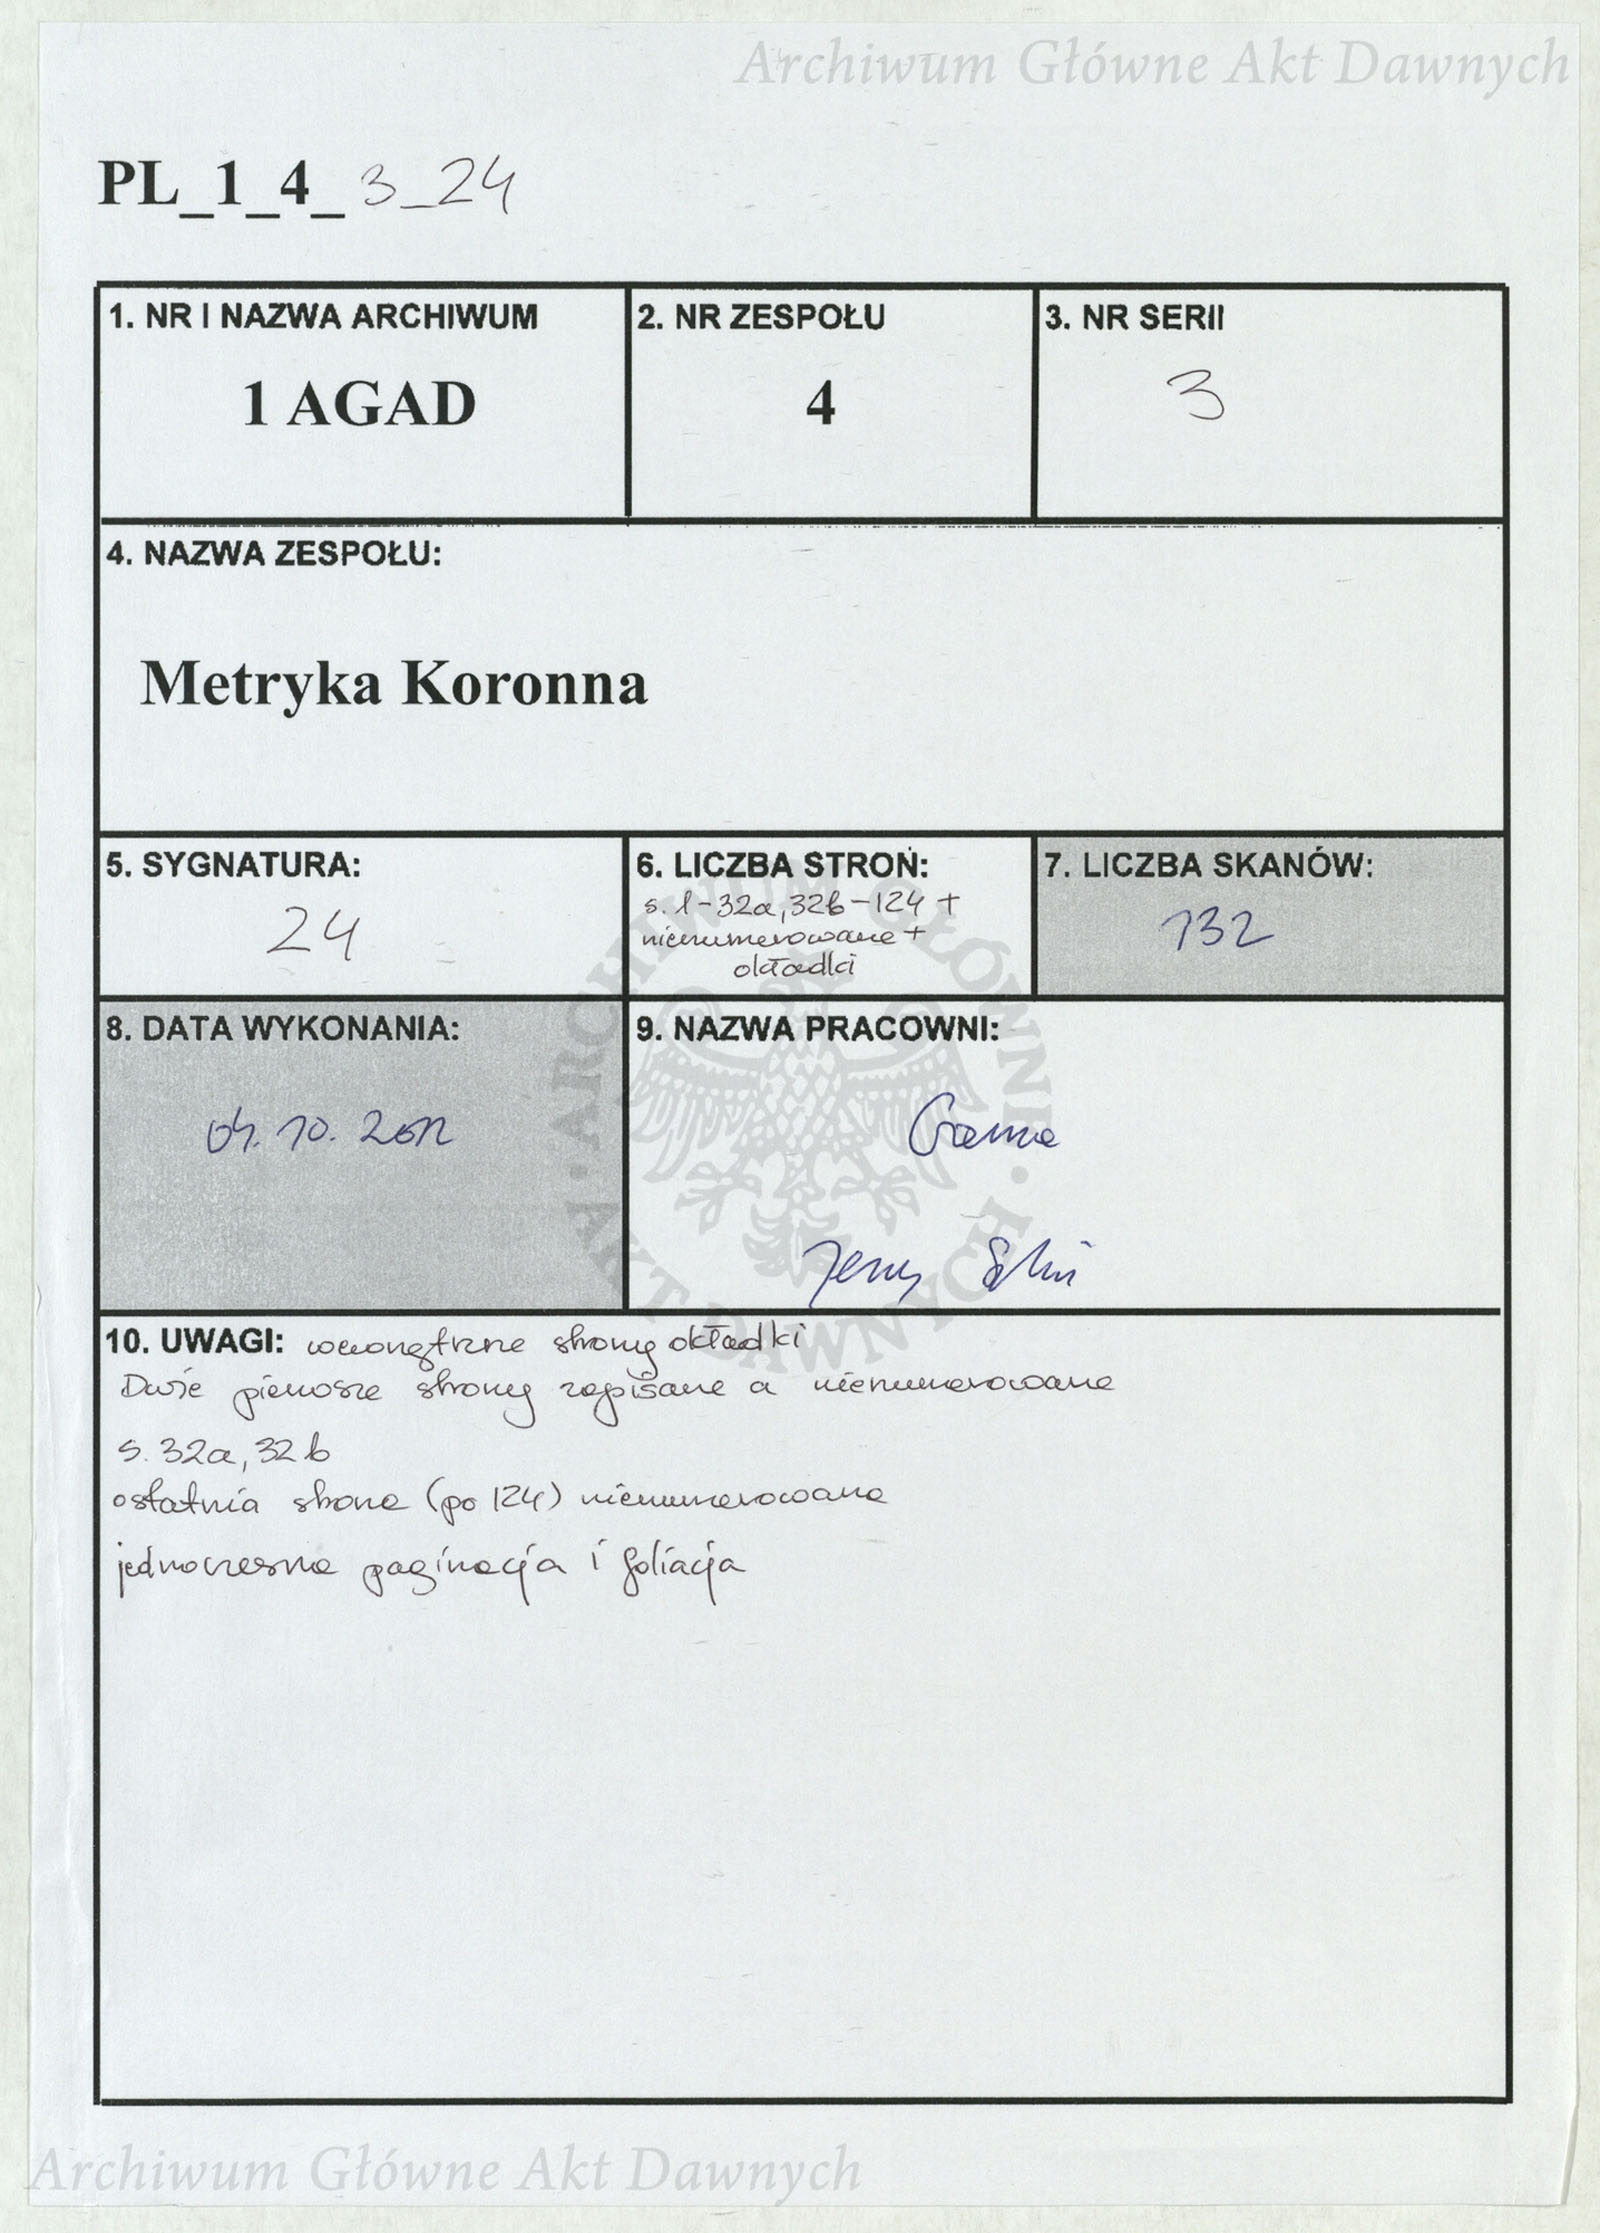 Archiwum Główne Akt Dawnych
PL_1_4_3_24
1. NR I NAZWA ARCHIWUM
1 AGAD
2. NR ZESPOŁU
4
3. NR SERII
3
4. NAZWA ZESPOŁU:
Metryka Koronna
5. SYGNATURA:
24
6. LICZBA STRON:
s. 1-32a, 32b-124 +
nienumerowane +
okładki
7. LICZBA SKANÓW:
132
8. DATA WYKONANIA:
04.10.2012
9. NAZWA PRACOWNI:
Jerzy
10. UWAGI: wewnętrzne strony okładki
Dwie pierwsze strony zapisane a nienumerowane
s. 32a, 32b
ostatnia strona (po 124) nienumerowana
jednoczesna paginacja i foliacja
ARCHIWUM GŁÓWNE · AKT DAWNYCH ·
Archiwum Główne Akt Dawnych